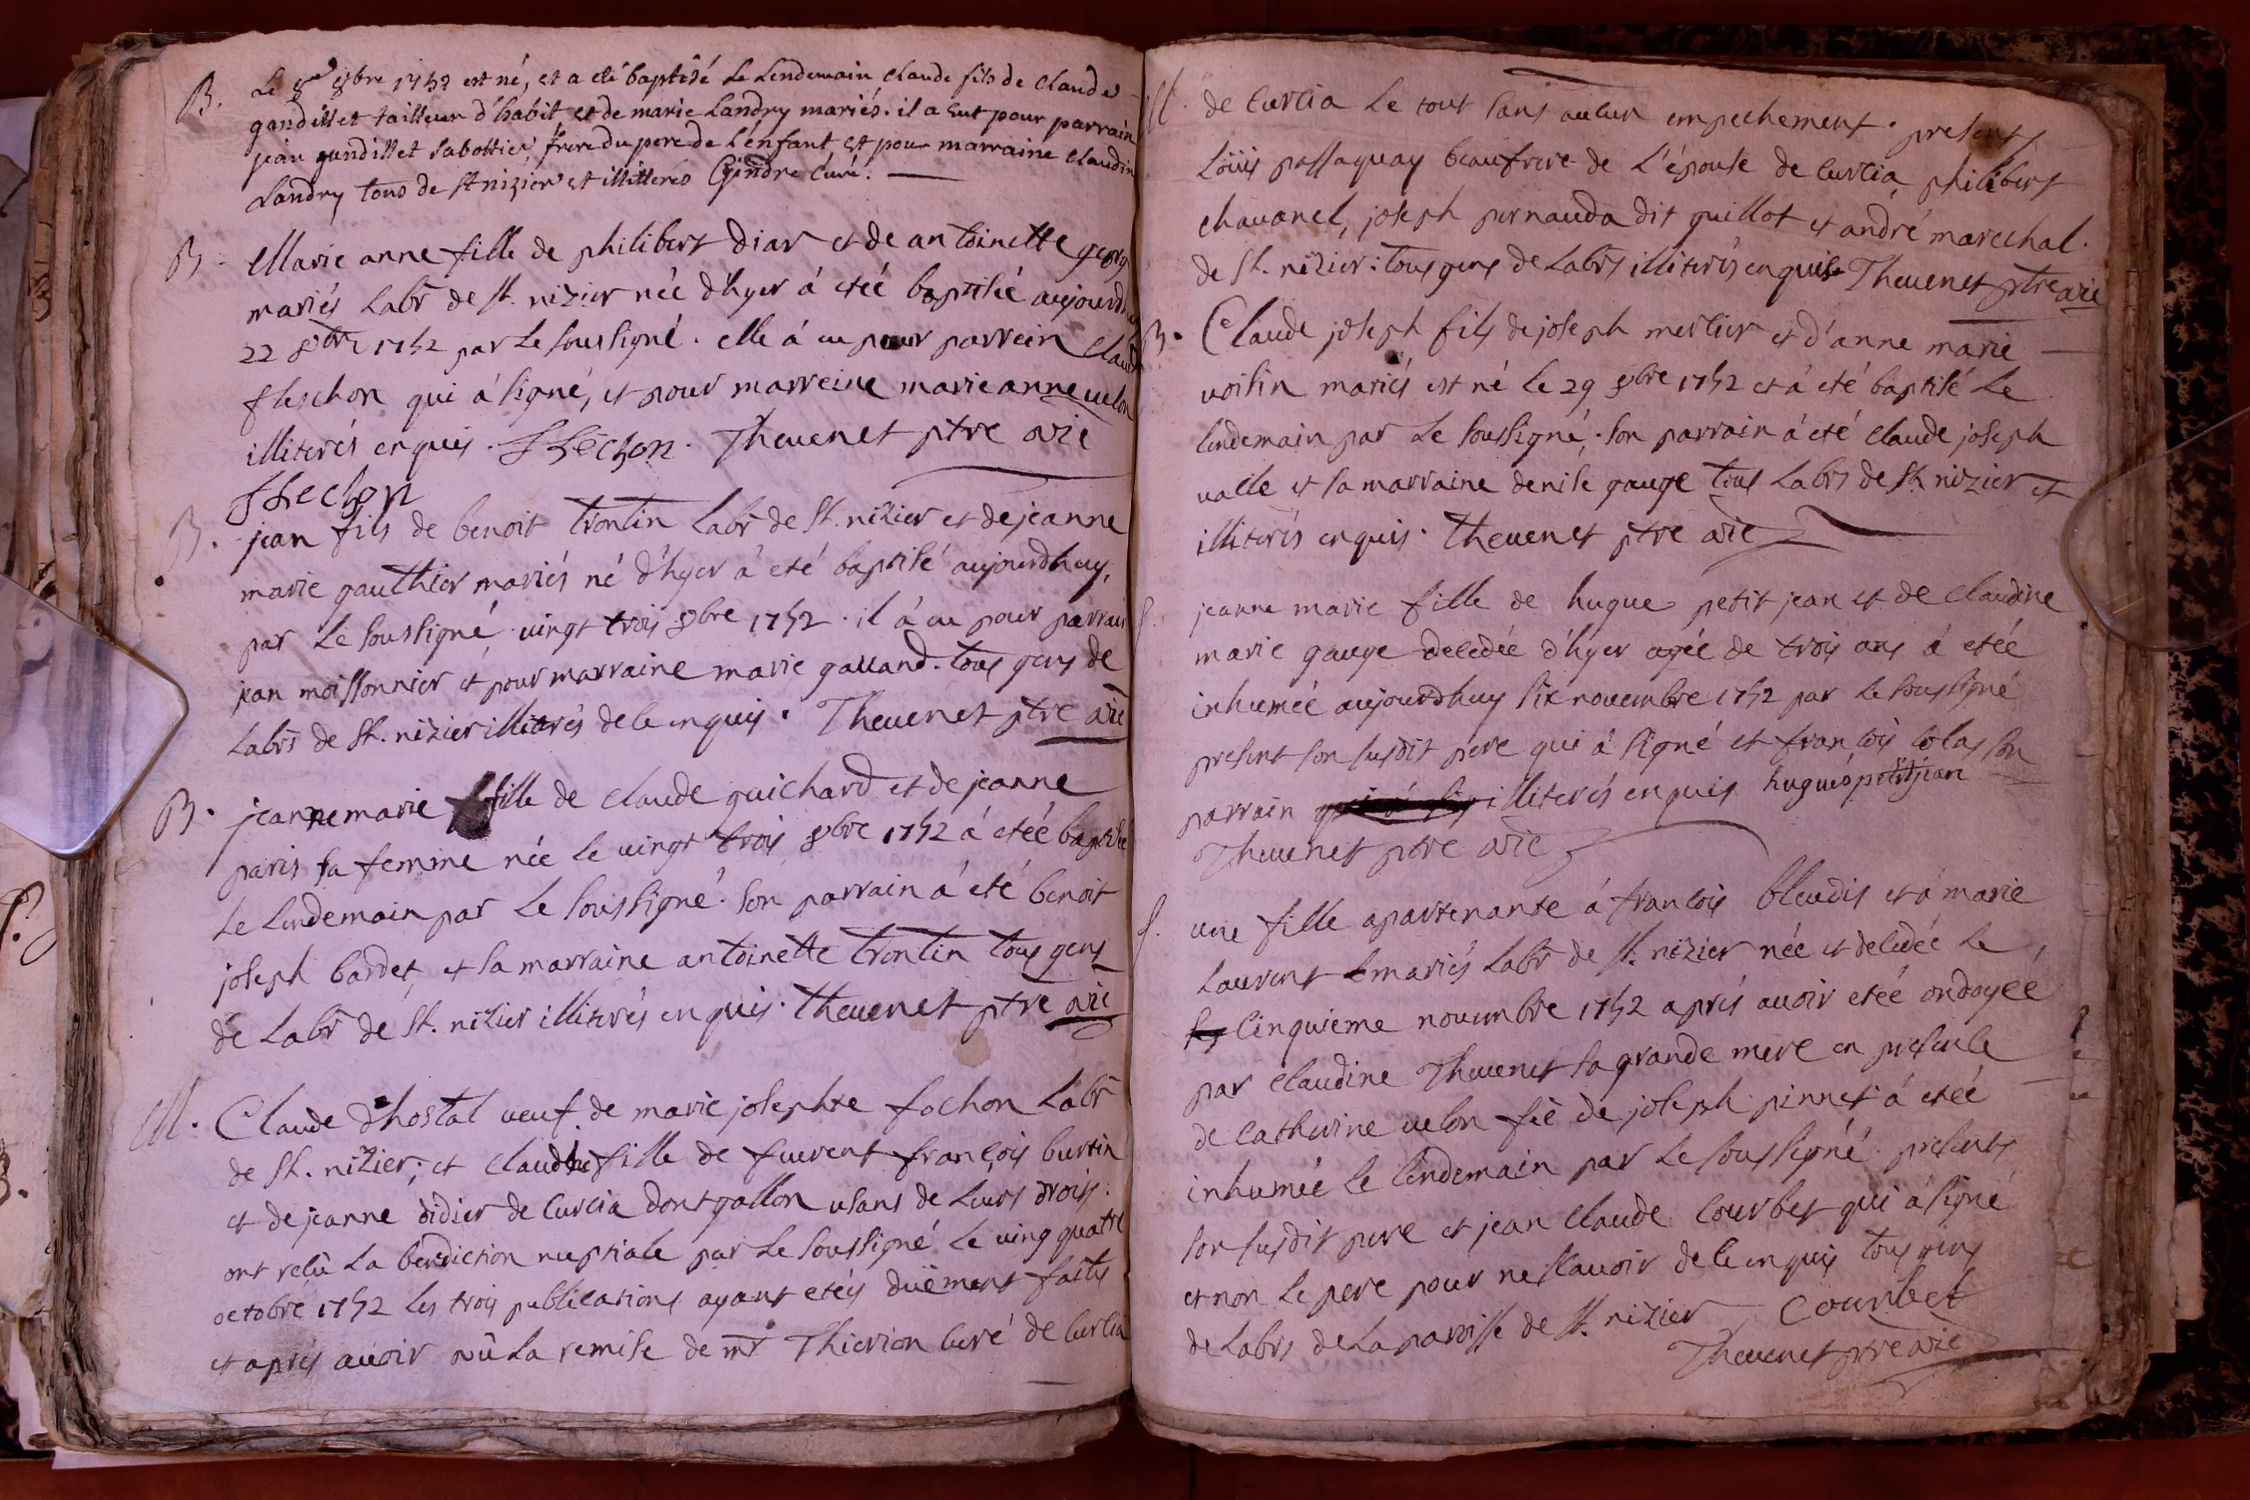 B. Le 8e 8bre 1752 est né, et a eté baptisé le lendemain claude fils de claude
gandillet tailleur d'habit et de marie Landry mariés. il a eut pour parrain
jean gandillet sabottier, frere du pere de l'enfant et pour marraine claudin
Landry tous de st nizier et illitterés Gindre curé.
B. Marie anne fille de philibert Diar et de antoinette
mariés Labr de st. nizier née d'hyer á eteé baptisée aujourd
22 8bre 1752 par le soussigné. elle á eu pour parrein Claud
flechon qui á signé, et pour marreine marie anne velon
illiterés enquis. Flechon. Thevenet ptre vic
Flechon
B. jean fils de benoit trontin Labr de St. nizier et de jeanne
marie gauthier mariés né d'hyer á eté baptisé aujourdhuy,
par le soussigné vingt trois 8bre 1752. il á eu pour parrain
jean moissonnier et pour marraine marie galland. tous gens de
Labrs de St. nizier illiterés de ce enquis. Thevenet ptre vic
B. jeanne marie fille de claude guichard et de jeanne
paris sa femme née le vingt trois 8bre 1752 á eteé baptisée
le lendemain par le soussigné. son parrain á eté benoit
joseph bardet, et sa marraine antoinette trontin tous gens
de Labr de St. nizier illiterés enquis. thevenet ptre vic
M. Claude d'hostal veuf de marie josephte fochon Labr
de St. nizier; et claudine fille de fuerent françois burtin
et de jeanne didier de Curcia dontgallon usans de leurs droits.
ont reçû La benediction nuptiale par le soussigné le ving quatre
octobre 1752 les trois publications ayant etéés duëment faites
et aprés avoir vû la remise de mr Thierion curé de curcia
M. de Curcia le tout sans aucun empechement. presents
Loüis passaquay beaufrere de l'épouse de curcia, philibert
chavanel, joseph pernauda dit guillot et andré marechal.
de St. nizier: tous gens de Labrs illiterés enquis Thevenet ptre vic
B. Claude joseph fils de joseph mercier et d'anne marie
voisin mariés est né le 29 8bre 1752 et á eté baptisé le
lendemain par le soussigné. son parrain á eté claude joseph
valle et sa marraine denise gauge tous Labrs de st. nizier et
illiterés enquis. thevenet ptre vic
S. jeanne marie fille de hugue petit jean et de claudine
marie gauge decedée d'hyer agée de trois ans á etéé
inhumée aujourdhuy six novembre 1752 par le soussigné
present son susdit pere qui á signé et françois colas son
parrain illiterés enquis hugués petitjean
Thevenet ptre vic
S. une fille apartenante á françois bleudis et á marie
Laurent mariés Labr de st. nizier née et decedée le
cinquieme novembre 1752 aprés avoir etéé ondoyée
par claudine Thevenet sa grande mere en presence
de catherine velon fe de joseph pinnet á etéé
inhumée le lendemain par le soussigné presents
son susdit pere et jean claude courbet qui á signé
et non le pere pour ne sçavoir de ce enquis tous gens
de Labrs de la paroisse de st. nizier Courbet
Thevenet ptre vic